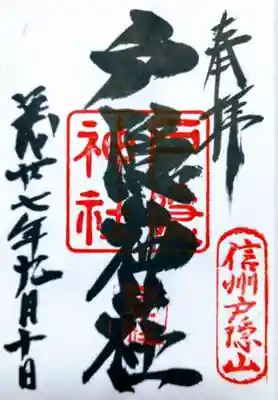 奉拝
信州戸隠山
戸隠神社
戸隠
神社
平成廿七年九月十日